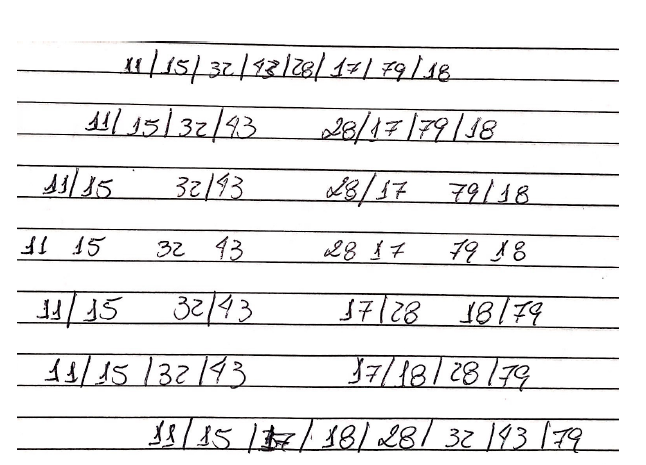 11/15/32/43/28/17/79/18
11/15/32/43 28/17/79/18
11/15 32/43 28/17 79/18
11 15 32 43 28 17 79 18
11/15 32/43 17/28 18/79
11/15/32/43 17/18/28/79
11/15/17/18/28/32/43/79